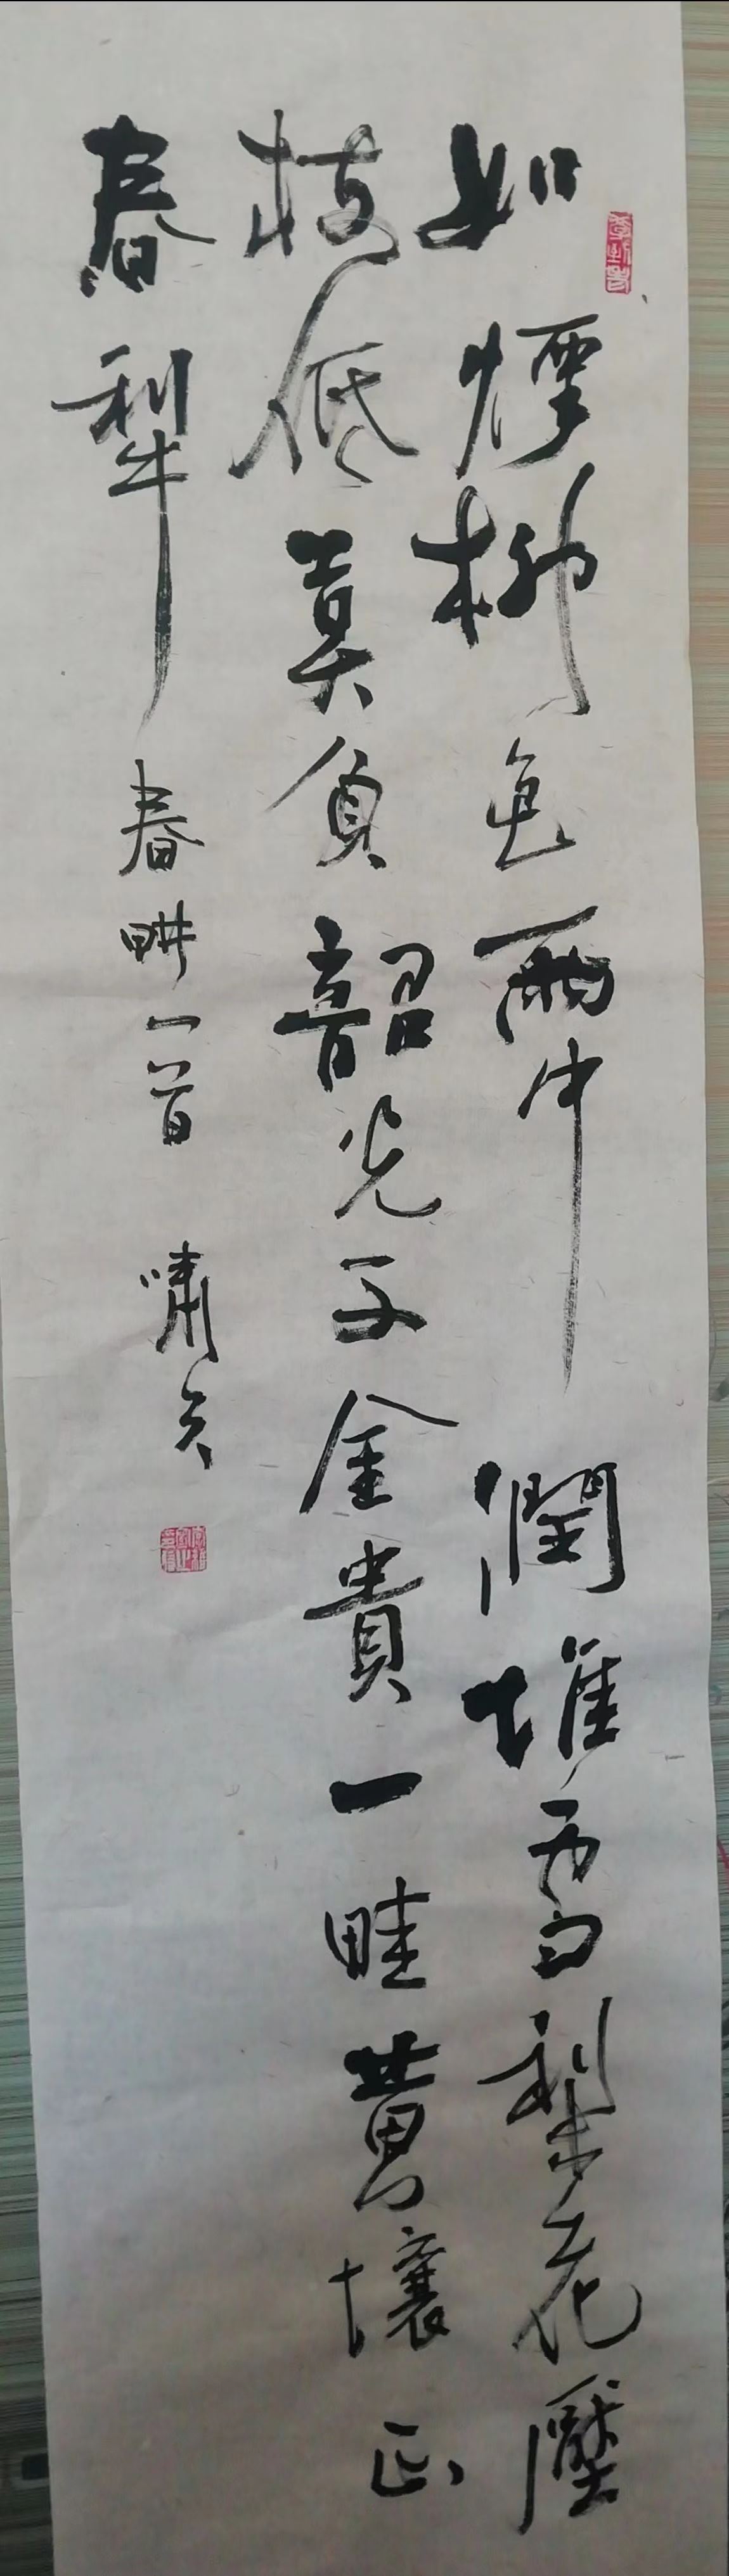 如煙柳色雨中潤堆雪梨花壓
枝低莫負韶光千金貴一畦黄壤正
春犁
春畊一首 嘯天